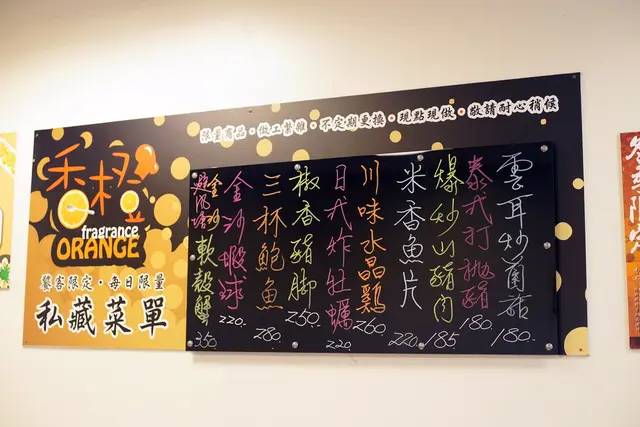 限量商品·做工繁雜·不定期更換·現點現做·敬請耐心稍候
香橙
fragrance
ORANGE
饕客限定·每日限量
私藏菜單
雲耳炒菌菇 180.
泰式打拋豬 180.
爆炒山豬肉 185
米香魚片 220.
川味水晶雞 260
日式炸牡蠣 220.
椒香豬腳 250.
三杯鮑魚 280
金沙蝦球 220.
金沙避風塘軟殼蟹 350